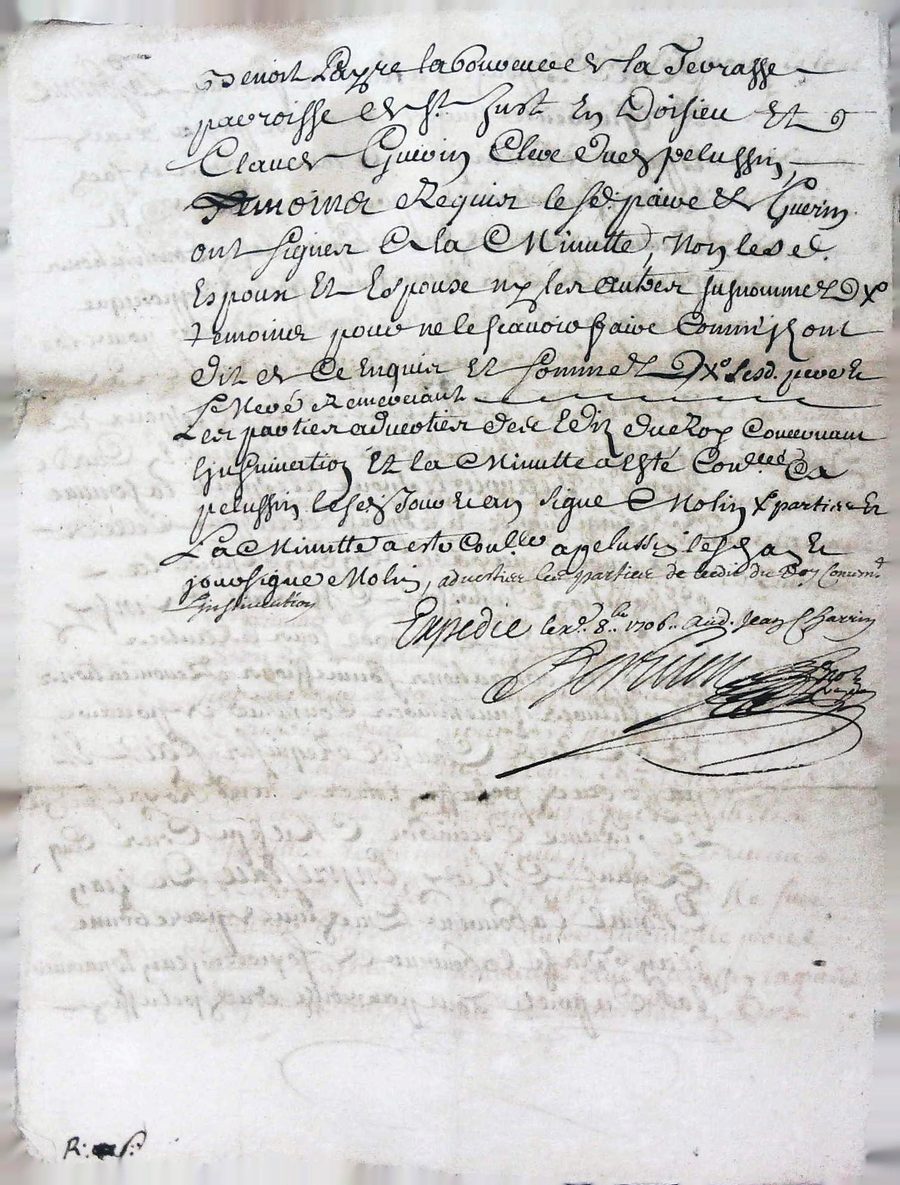 Benoit Payre laboureur de la Terrasse
parroisse de St Just En Doisieu Et
Claude Guerin Clerc dud pelussin
temoins Requis led. paire & Guerin
ont signer a la Minutte, Non lesd.
Espoux Et Espouse ny les autres susnommed
temoins pour ne le scavoir faire Comm' ils ont
dit de Ce Enquis Et sommed lesd. pere Et
Remerciant
Les parties adverties de l'Edit du Roy Concernant
L'insinuation Et la Minutte a esté Con.llee a
pelussin lesd jour Et an signé Molin parties Et
La Minutte a este Con.llee a pelussin les an Et
jour signé Molin, advertier les partier de ledit du Roy Concernt
l'insinuation
Expedié le 8.bre 1706 aud. Jean Charrin
R: